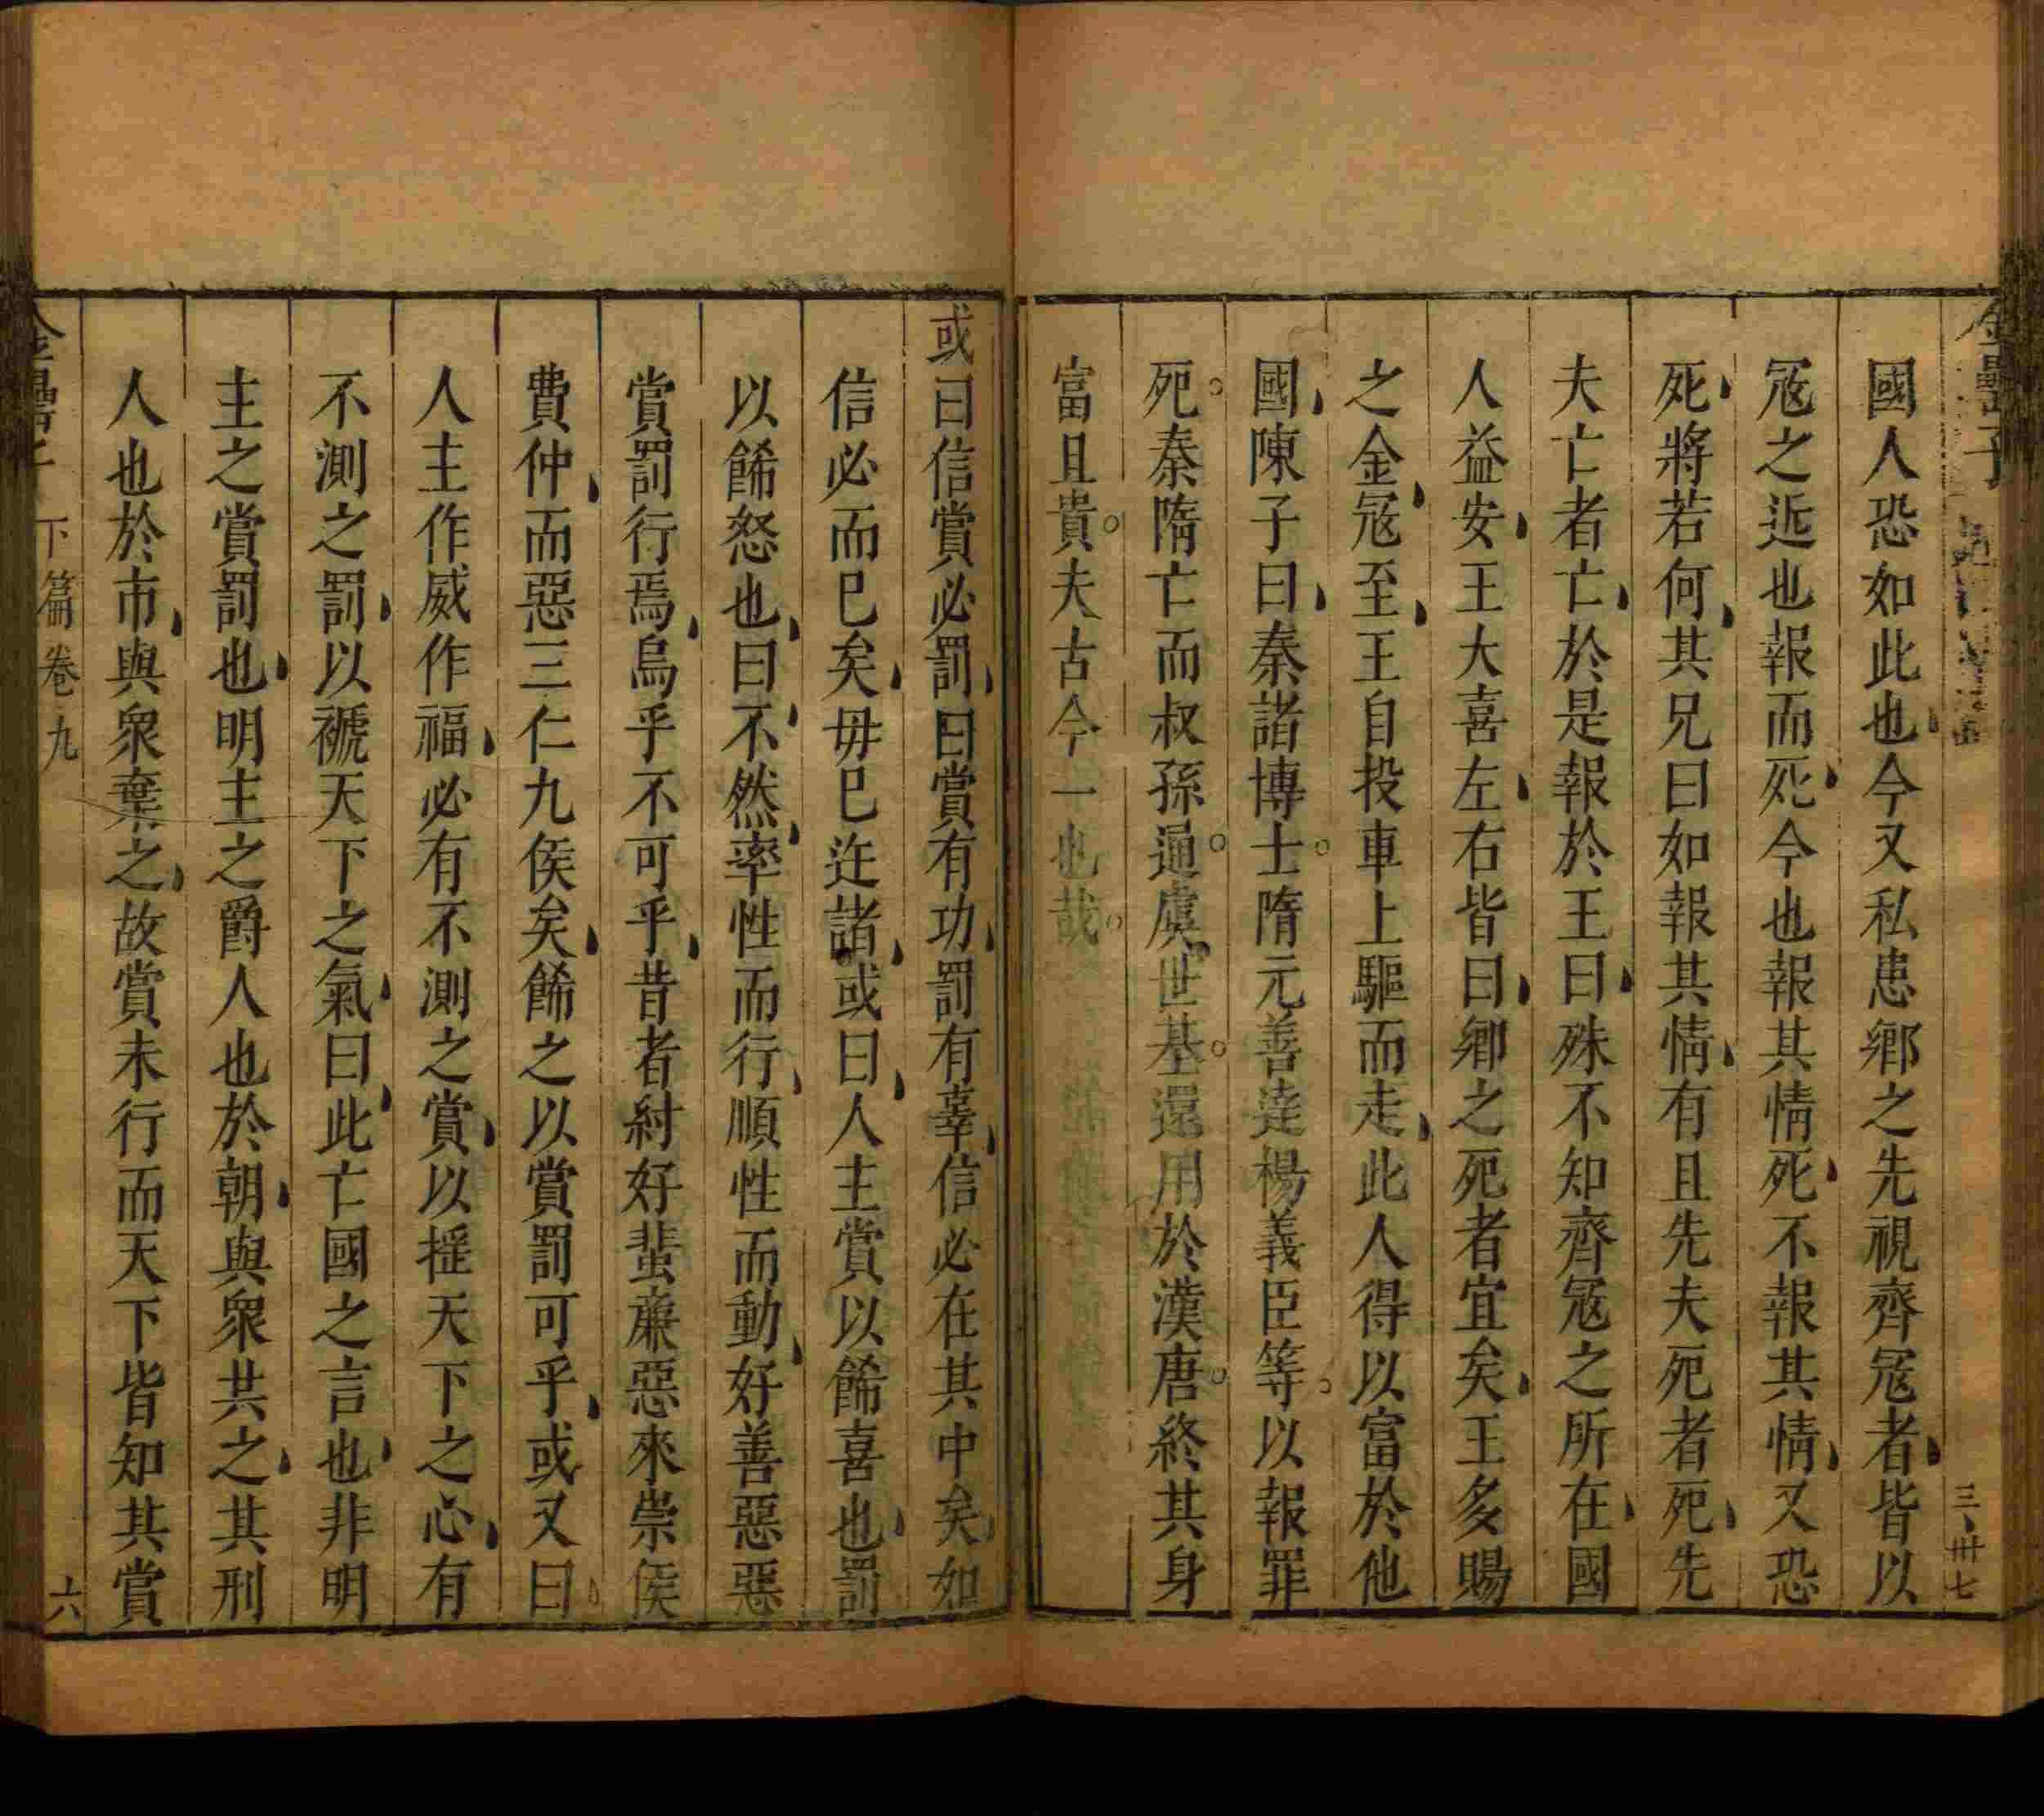 國人恐如此也今又私患鄉之先視齊冦者皆以
冦之近也報而死今也報其情死不報其情又恐
死將若何其兄曰如報其情有且先夫死者死先
夫亡者亡於是報於王曰殊不知齊冦之所在國
人益安王大喜左右皆曰鄉之死者宜矣王多賜
之金冦至王自投車上驅而走此人得以富於他
國陳子曰秦諸博士隋元善達楊義臣等以報罪
死秦隋亡而叔孫通虞世基還用於漢唐終其身
富且貴夫古今一也哉
或曰信賞必罰曰賞有功罰有辜信必在其中矣如
信必而已矣毋已迕諸或曰人主賞以餙喜也罰
以餙怒也曰不然率性而行順性而動好善惡惡
賞罰行焉烏乎不可乎昔者紂好蜚廉惡來崇侯
費仲而惡三仁九侯矣餙之以賞罰可乎或又曰
人主作威作福必有不測之賞以揺天下之心有
不測之罰以褫天下之氣曰此亡國之言也非明
主之賞罰也明主之爵人也於朝與衆共之其刑
人也於市與衆棄之故賞未行而天下皆知其賞
下篇卷九
六